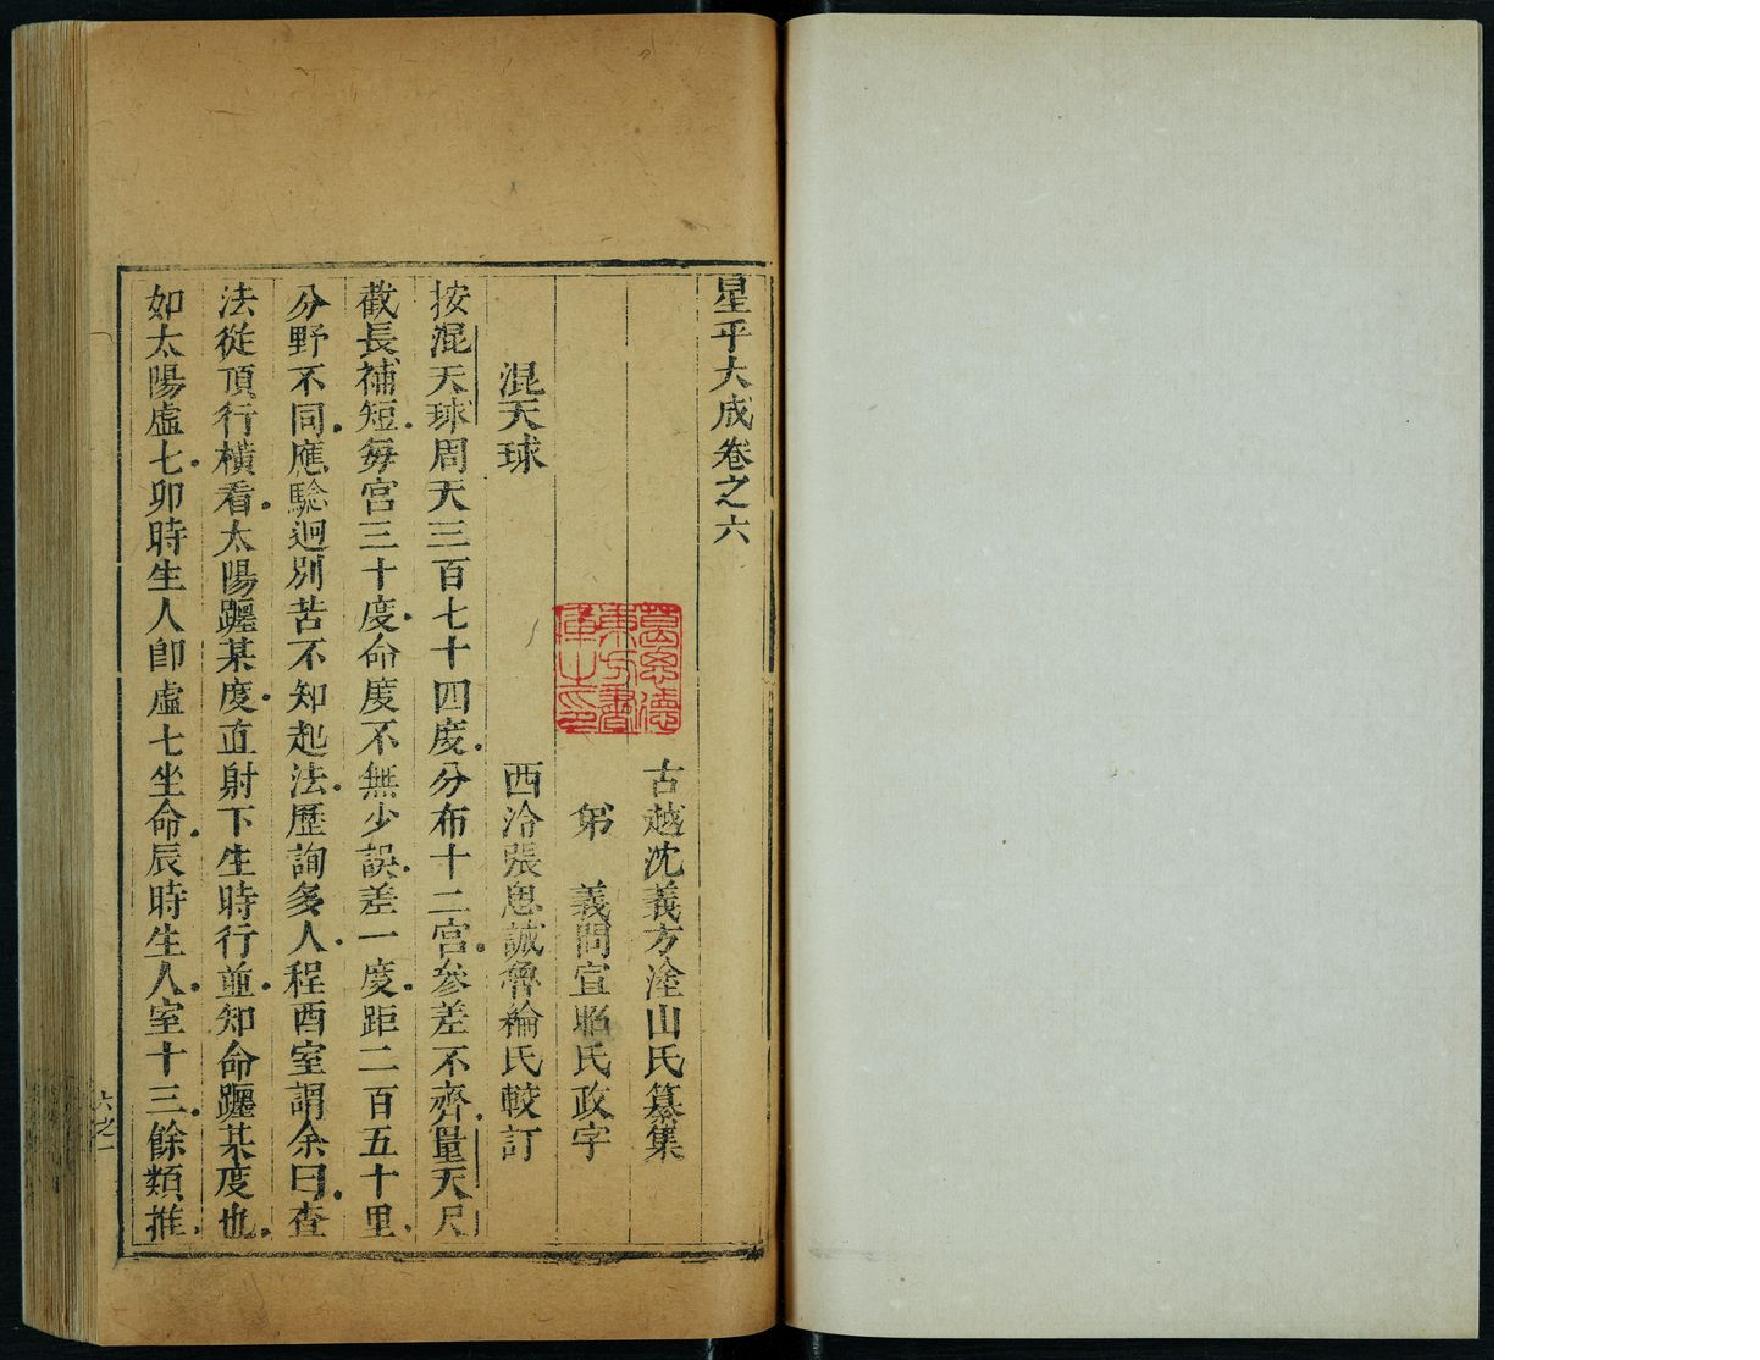 星平大成卷之六
古越沈義方塗山氏纂集
弟　義問宣昭氏政字
混天球　西泠張思誠魯綸氏較訂
按混天球周天三百七十四度分布十二宮參差不齊量天尺
截長補短每宮三十度命度不無少誤差一度距二百五十里
分野不同應驗迥別苦不知起法歷詢多人程酉室謂余曰查
法從頂行橫看太陽躔某度直射下生時行並知命躔某度也
如太陽虛七卯時生人卽虛七坐命辰時生人室十三餘類推
葛思德
東方書
庫之印
六之一